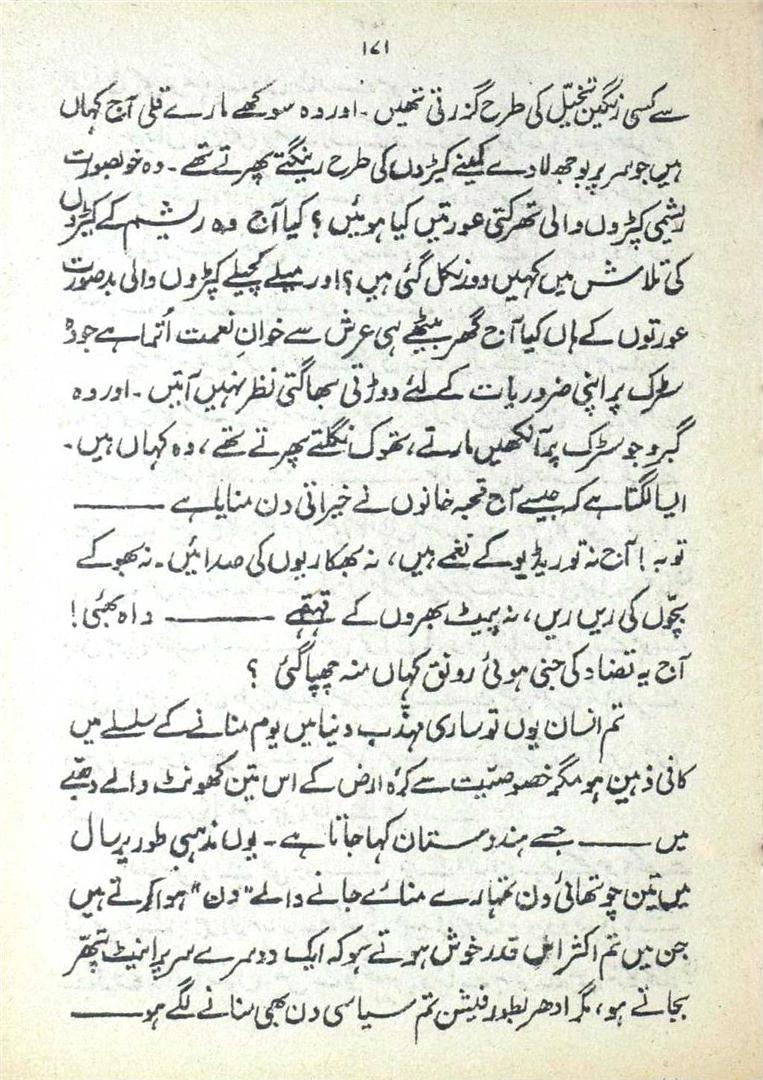 ۱۷۱
سے کسی رنگین تخیّل کی طرح گزرتی تھیں ۔ اور وہ سوکھے مارے قلی آج کہاں
ہیں جو سر پر بوجھ لادے کمینے کیڑوں کی طرح رینگتے پھرتے تھے ۔ وہ خوبصورت
ریشمی کپڑوں والی تھرکتی عورتیں کیا ہوئیں ؟ کیا آج وہ ریشم کے کیڑوں
کی تلاش میں کہیں دور نکل گئی ہیں ؟ اور میلے کچیلے کپڑوں والی بدصورت
عورتوں کے ہاں کیا آج گھر بیٹھے ہی عرش سے خوانِ نعمت اُترا ہے جو وہ
سڑک پر اپنی ضروریات کے لئے دوڑتی بھاگتی نظر نہیں آتیں ۔ اور وہ
گبرو جو سڑک پر آنکھیں مارتے ، تھوک نگلتے پھرتے تھے ، وہ کہاں ہیں ۔
ایسا لگتا ہے کہ جیسے آج قحبہ خانوں نے خیراتی دن منایا ہے ———
توبہ ! آج نہ تو ریڈیو کے نغمے ہیں ، نہ بھکاریوں کی صدائیں ۔ نہ بھوکے
بچّوں کی ریں ریں ، نہ پیٹ بھروں کے قہقہے ——— واہ بھئی !
آج یہ تضاد کی جنی ہوئی رونق کہاں منہ چھپا گئی ؟
تم انسان یوں تو ساری مہذّب دنیا میں یوم منانے کے سلسلے میں
کافی ذہین ہو مگر خصوصیّت سے کرّہ ارض کے اس تین کھونٹ والے دھبّے
میں ——— جسے ہندوستان کہا جاتا ہے ۔ یوں مذہبی طور پر سال
میں تین چوتھائی دن تمہارے منائے جانے والے "دن" ہوا کرتے ہیں
جن میں تم اکثر اس قدر خوش ہوتے ہو کہ ایک دوسرے سر پر اینٹ پتھر
بجاتے ہو ، مگر ادھر بطور فیشن تم سیاسی دن بھی منانے لگے ہو ———